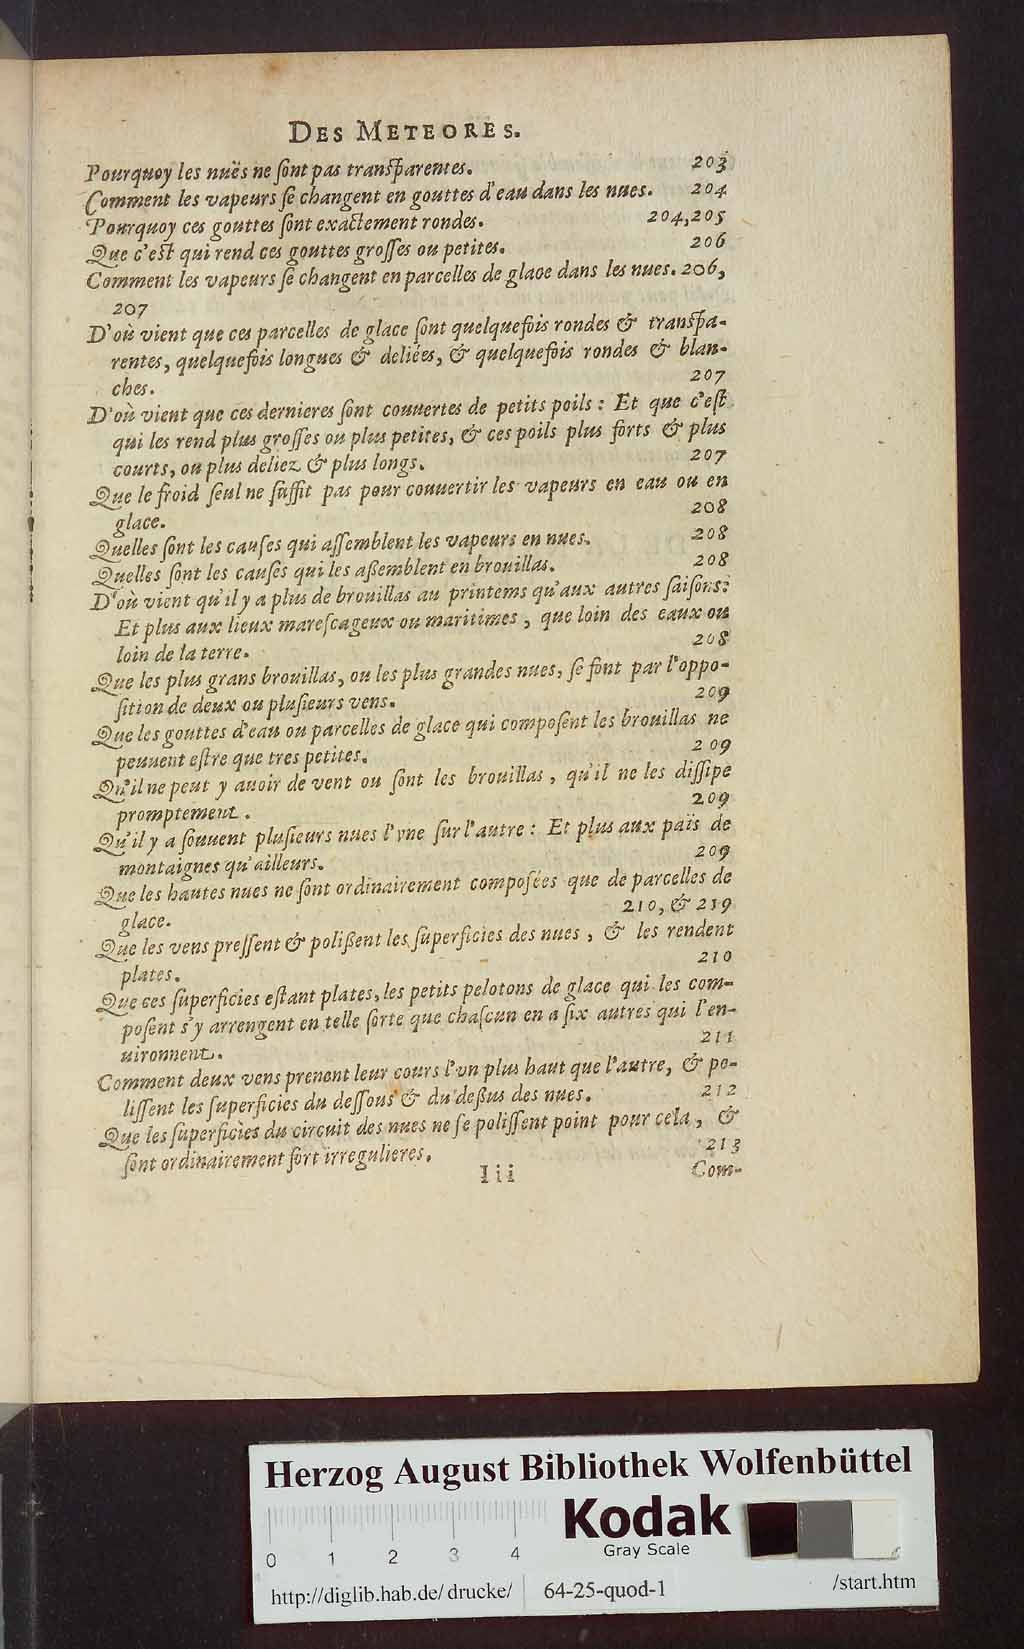 DES METEORES.
Pourquoy les nuës ne ſont pas tranſparentes. 203
Comment les vapeurs ſe changent en gouttes d'eau dans les nues. 204
Pourquoy ces gouttes ſont exactement rondes. 204,205
Que c'eſt qui rend ces gouttes groſſes ou petites. 206
Comment les vapeurs ſe changent en parcelles de glace dans les nues. 206,
207
D'où vient que ces parcelles de glace ſont quelquefois rondes & tranſpa-
rentes, quelquefois longues & deliées, & quelquefois rondes & blan-
ches. 207
D'où vient que ces dernieres ſont couuertes de petits poils : Et que c'eſt
qui les rend plus groſſes ou plus petites, & ces poils plus forts & plus
courts, ou plus deliez & plus longs. 207
Que le froid ſeul ne ſuffit pas pour conuertir les vapeurs en eau ou en
glace. 208
Quelles ſont les cauſes qui aſſemblent les vapeurs en nues. 208
Quelles ſont les cauſes qui les aßemblent en brouillas. 208
D'où vient qu'il y a plus de brouillas au printems qu'aux autres ſaiſons:
Et plus aux lieux mareſcageux ou maritimes, que loin des eaux ou
loin de la terre. 208
Que les plus grans brouillas, ou les plus grandes nues, ſe font par l'oppo-
ſition de deux ou pluſieurs vens. 209
Que les gouttes d'eau ou parcelles de glace qui compoſent les brouillas ne
peuuent eſtre que tres petites. 209
Qu'il ne peut y auoir de vent ou ſont les brouillas, qu'il ne les diſſipe
promptement. 209
Qu'il y a ſouuent pluſieurs nues l'vne ſur l'autre : Et plus aux païs de
montaignes qu'ailleurs. 209
Que les hautes nues ne ſont ordinairement compoſées que de parcelles de
glace. 210, & 219
Que les vens preſſent & polißent les ſuperficies des nues, & les rendent
plates. 210
Que ces ſuperficies eſtant plates, les petits pelotons de glace qui les com-
poſent s'y arrengent en telle ſorte que chaſcun en a ſix autres qui l'en-
uironnent. 211
Comment deux vens prenent leur cours l'vn plus haut que l'autre, & po-
liſſent les ſuperficies du deſſous & du deßus des nues. 212
Que les ſuperficies du circuit des nues ne ſe poliſſent point pour cela, &
ſont ordinairement fort irregulieres. 213
Iii Com-
Herzog August Bibliothek Wolfenbüttel
Kodak
Gray Scale
0 1 2 3 4
http://diglib.hab.de/drucke/ 64-25-quod-1 /start.htm